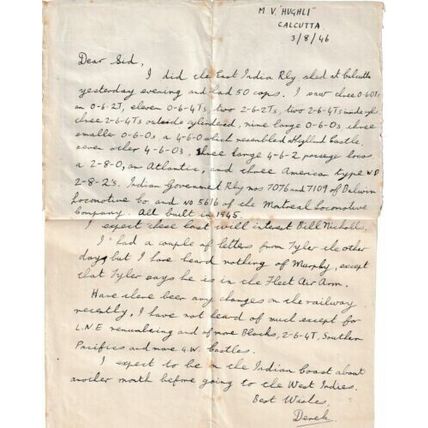 M V 'HUGHLI'
CALCUTTA
3/8/46
Dear Sid,
I did the East India Rly shed at Calcutta
yesterday evening and had 50 cops. I saw three 0-6-0Ts,
an 0-6-2T, eleven 0-6-4Ts, two 2-6-2Ts, two 2-6-4Ts inside
three 2-6-4Ts outside cylindered, nine large 0-6-0s, three
smaller 0-6-0s, a 4-6-0 which resembled a Highland Castle,
seven other 4-6-0s, three large 4-6-2 passenge locos
a 2-8-0, an Atlantic, and three American type W.D
2-8-2s. Indian Government Rly nos 7076 and 7109 of Baldwin
Locomotive Co, and no 5616 of the Montreal Locomotive
Company. All built in 1945.
I expect these last will interest Bill Nicholls.
I had a couple of letters from Tyler the other
day but I have heard nothing of Murphy, except
that Tyler says he is in the Fleet Air Arm.
Have there been any changes on the railway
recently, I have not heard of much except for
L.N.E renumbering and of more Blacks, 2-6-4T, Southern
Pacifics and more G.W. Castles.
I expect to be on the Indian Coast about
another month before going to the West Indies.
Best Wishes,
Derek